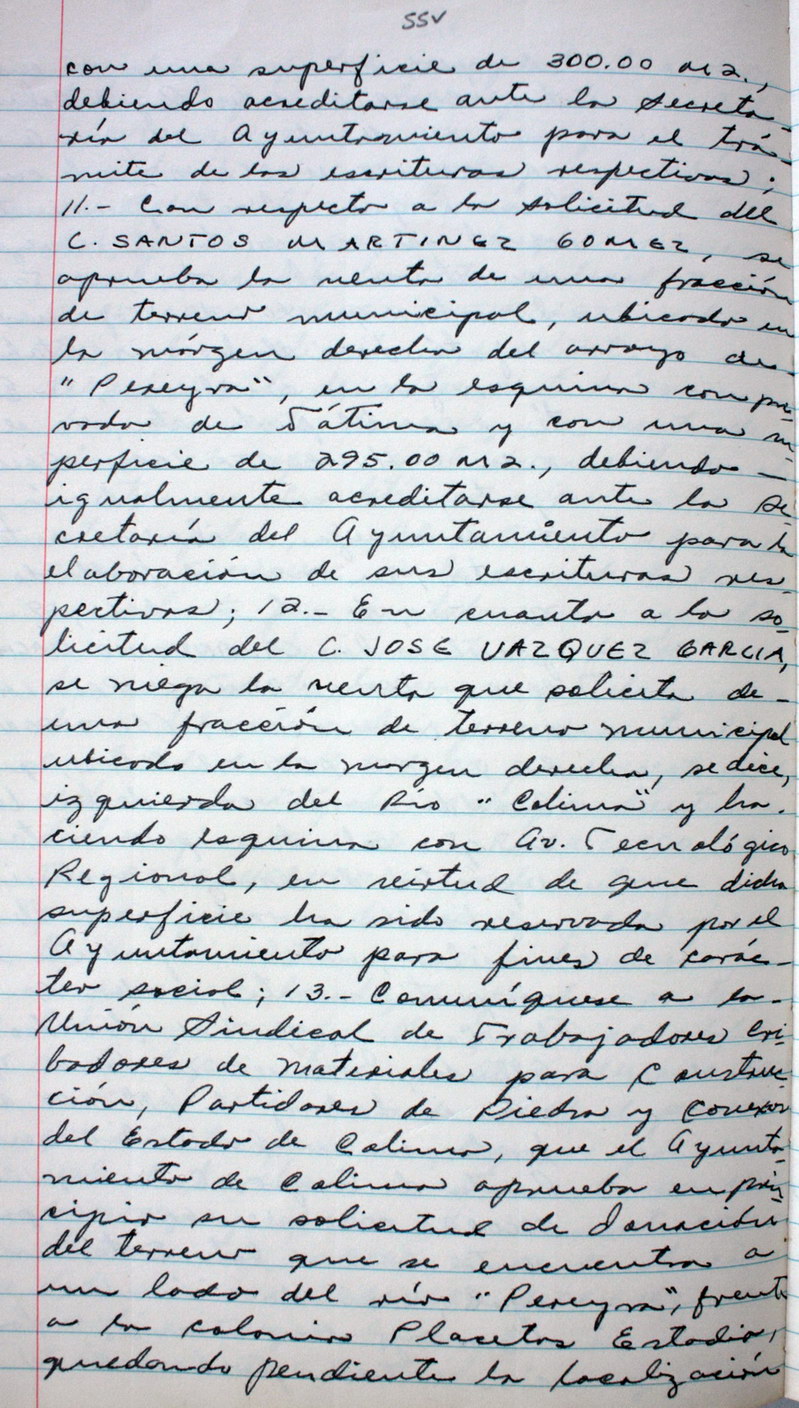 55v
con una superficie de 300.00 M2.,
debiendo acreditarse ante la Secreta-
ría del Ayuntamiento para el trá-
mite de las escrituras respectivas;
11.- Con respecto a la solicitud del
C. SANTOS MARTINEZ GOMEZ, se
aprueba la venta de una fracción
de terreno municipal, ubicado en
la márgen derecha del arroyo de-
"Pereyra", en la esquina con pri-
vada de Fátima y con una su-
perficie de 295.00 M2., debiendo -
igualmente acreditarse ante la Se-
cretaría del Ayuntamiento para la
elaboración de sus escrituras res-
pectivas; 12.- En cuanto a la so-
licitud del C. JOSE VAZQUEZ GARCIA,
se niega la venta que solicita de-
una fracción de terreno municipal
ubicado en la margen derecha, se dice,
izquierda del Río "Colima" y ha-
ciendo esquina con Av. Tecnológico
Regional, en virtud de que dicha
superficie ha sido reservada por el
Ayuntamiento para fines de carác-
ter social; 13.- Comuníquese a la-
Unión Sindical de Trabajadores Cri-
badores de materiales para Construc-
ción, Partidores de Piedra y Conexos
del Estado de Colima, que el Ayunta-
miento de Colima aprueba en prin-
cipio su solicitud de donación
del terreno que se encuentra a
un lado del río "Pereyra", frente
a la colonia Placetas Estadio,
quedando pendiente la localización